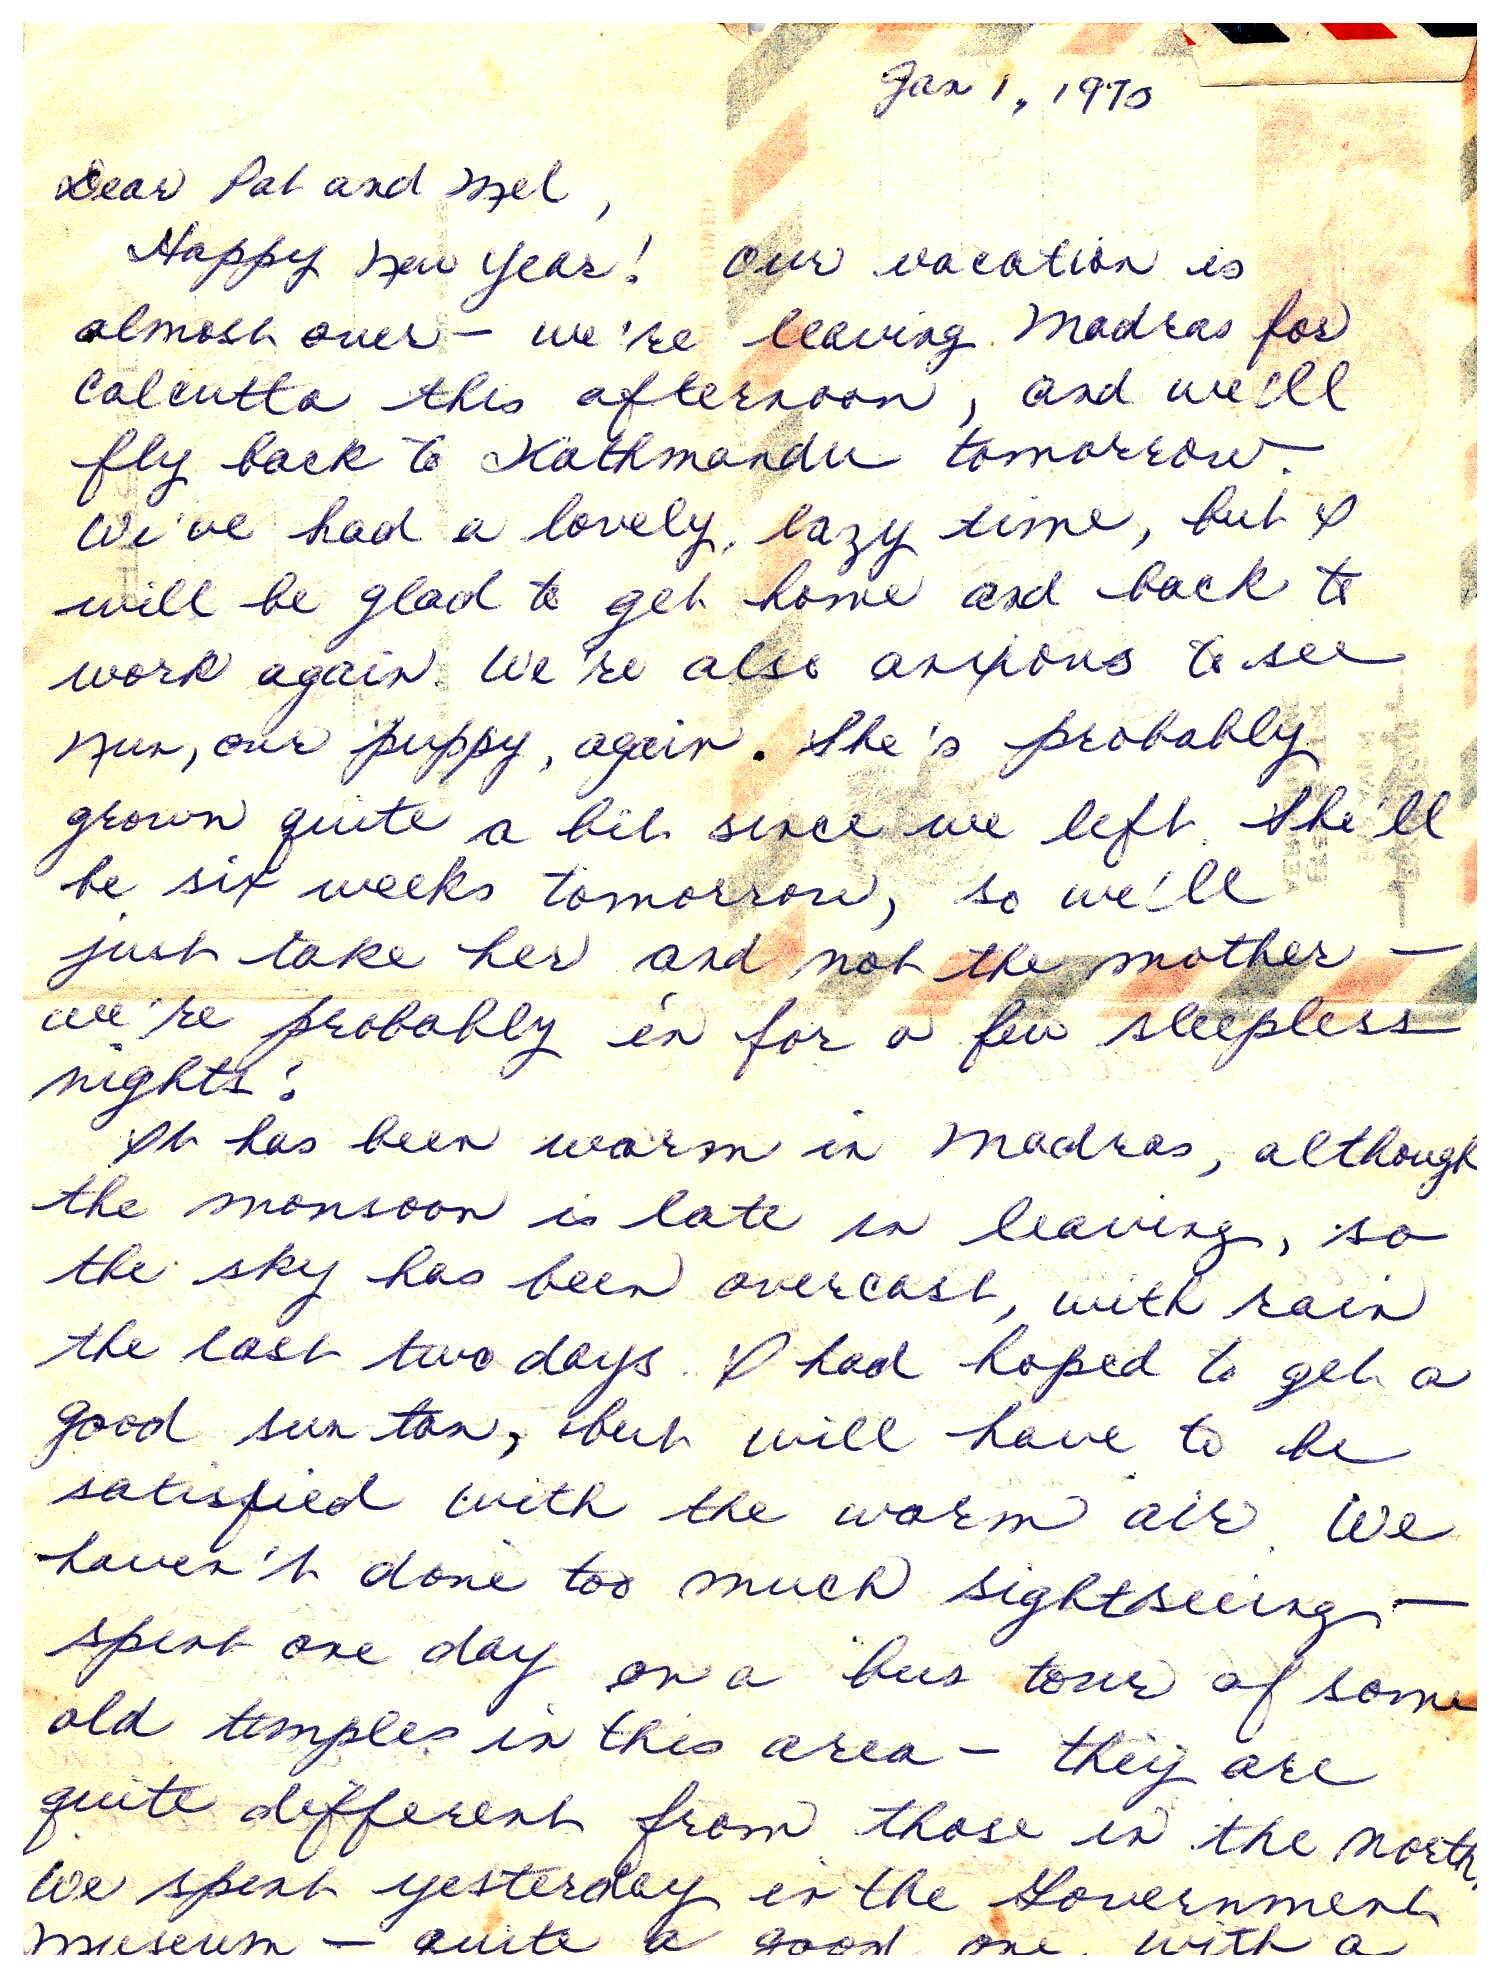 Jan 1, 1970
Dear Pat and Mel,
Happy New Year! Our vacation is
almost over — we're leaving Madras for
Calcutta this afternoon, and we'll
fly back to Kathmandu tomorrow.
We've had a lovely, lazy time, but I
will be glad to get home and back to
work again. We're also anxious to see
Nun, our puppy, again. She's probably
grown quite a bit since we left. She'll
be six weeks tomorrow, so we'll
just take her and not the mother —
we're probably in for a few sleepless
nights!
It has been warm in Madras, although
the monsoon is late in leaving, so
the sky has been overcast, with rain
the last two days. I had hoped to get a
good sun tan, but will have to be
satisfied with the warm air. We
haven't done too much sightseeing —
spent one day on a bus tour of some
old temples in this area — they are
quite different from those in the north.
We spent yesterday in the Government
Museum — quite a good one, with a